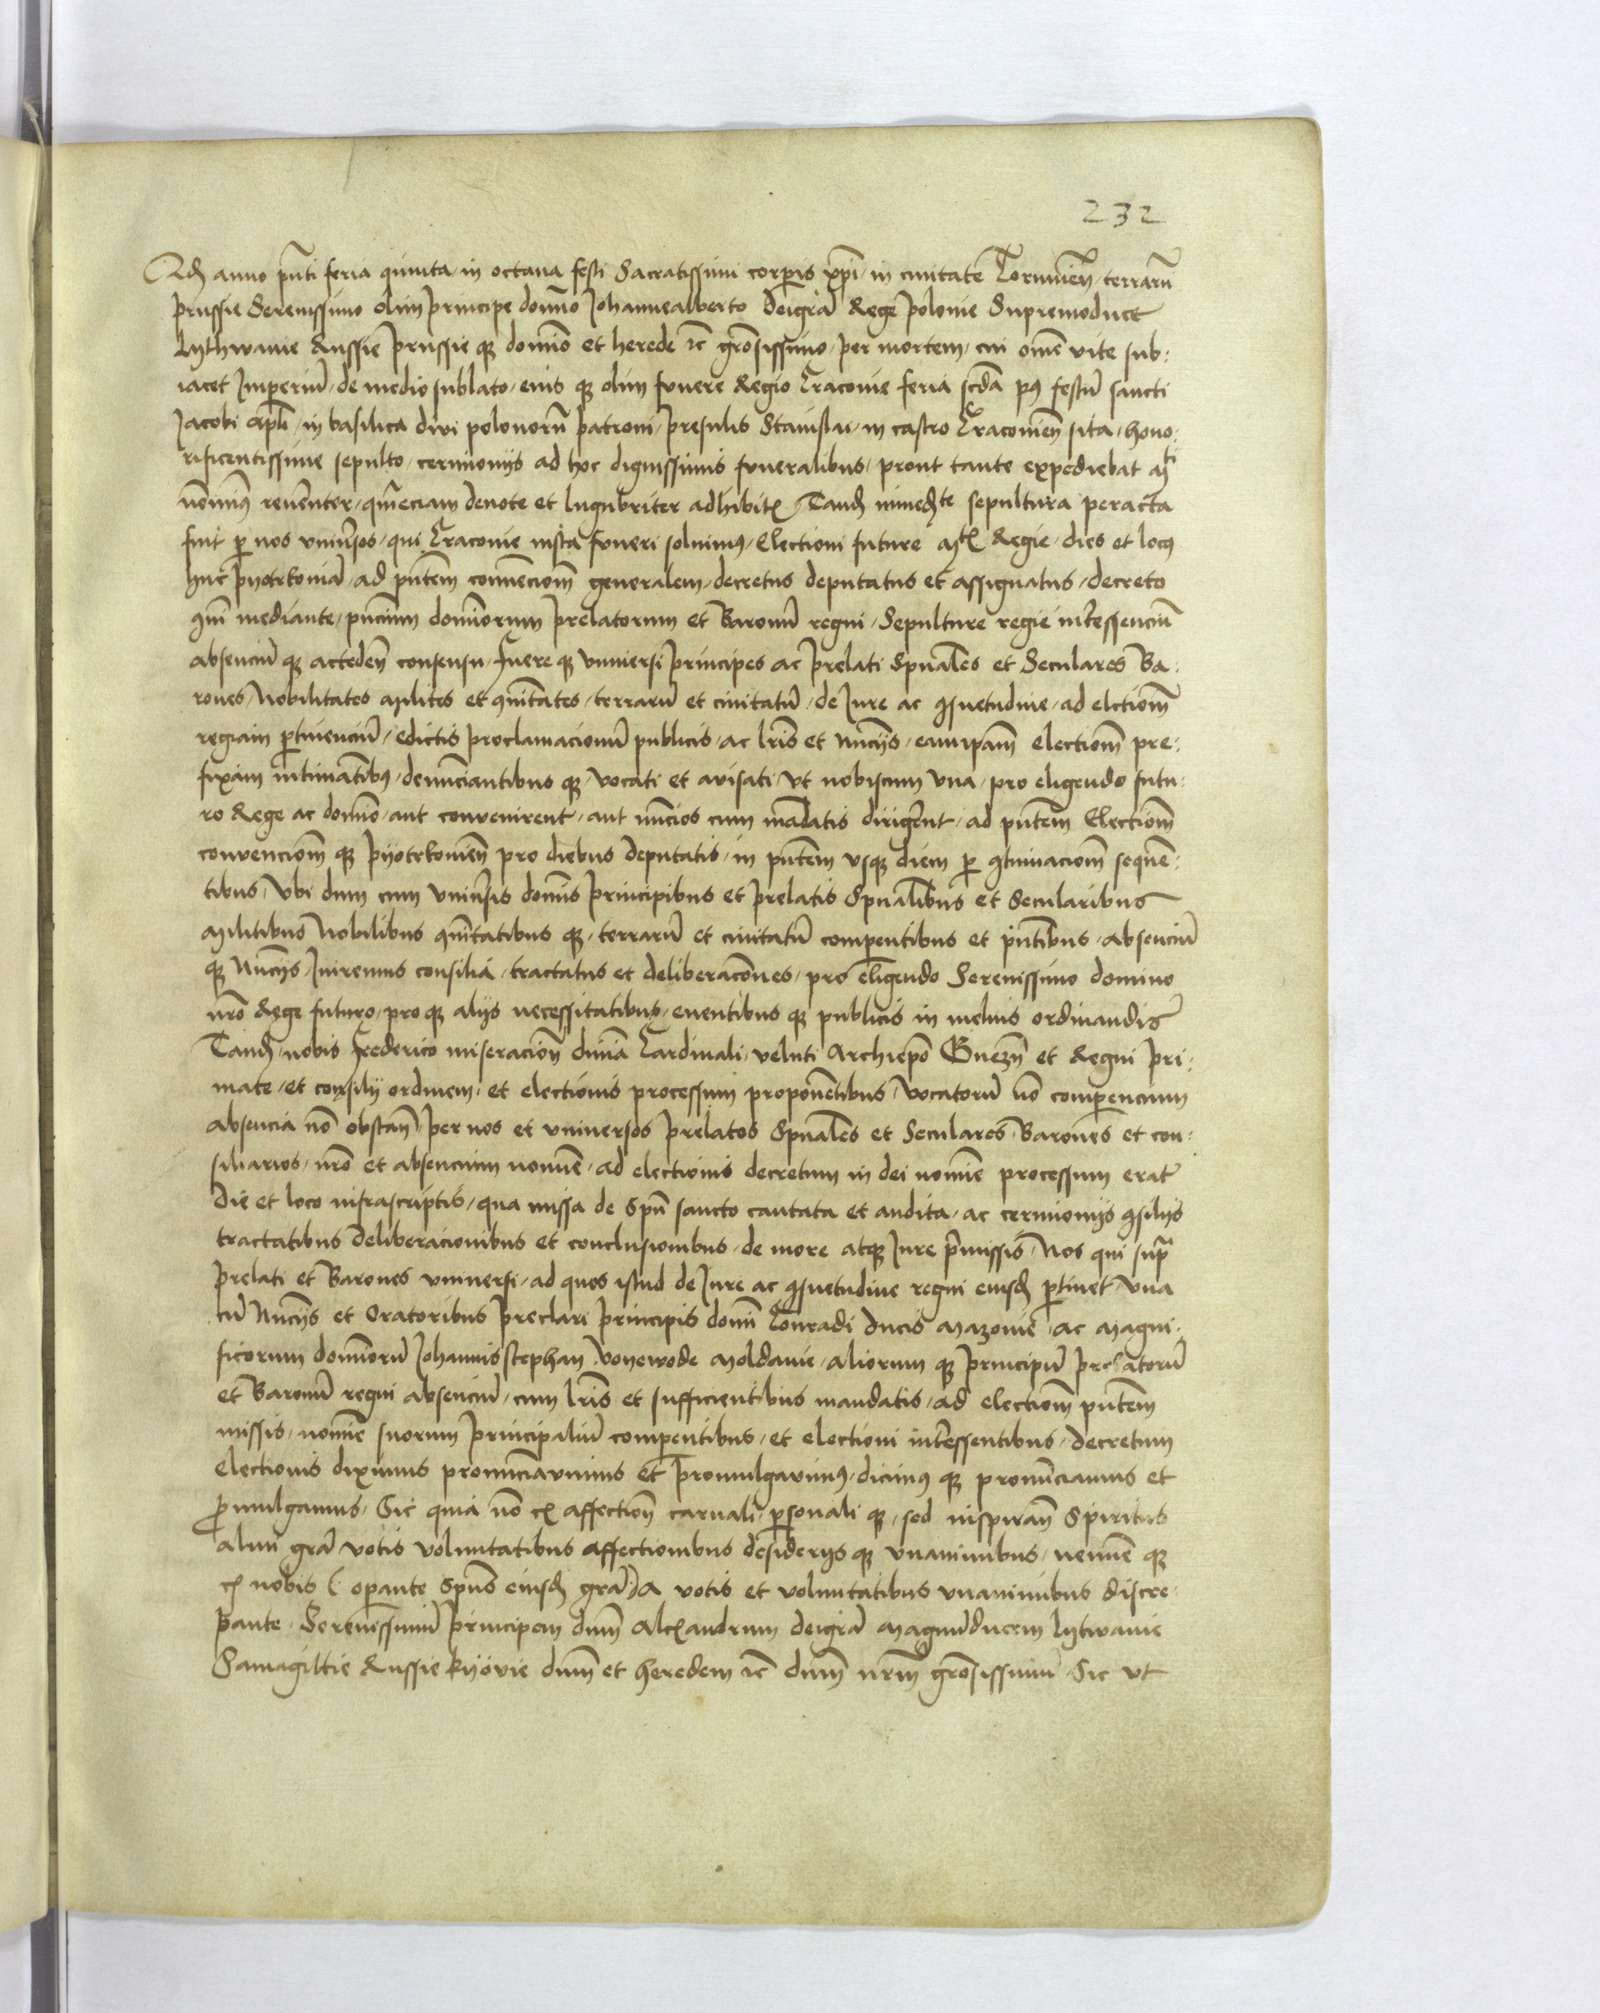 232
Qd anno pn̄ti feria quinta in octaua festi Sacratissimi corporis xpī in ciuitate Toruniēn terrarū
prussie Serenissimo olim principe domīno Johannealberto deigrā Rege polonie Supremoduce
Lythwanie Russie prussie q dominō et herede zc̄ grōsissimo per mortem cui omē vite sub-
iacet Imperiū de medio sublato eius q olim funere Regio Cracouie feria scdā p9 festū sancti
Jacobi apl̄i in basilica diui polonorū patroni presulis Stanislai in castro Cracouiēn sita hono-
rificentissime sepulto cerimonijs ad hoc dignissimis funeralibus prout tante expediebat
reuenter qm̄eciam deuote et lugubriter adhibit Tand immed̄te sepultura peracta
fuit p nos vniūsos qui Cracouie iusta funeri soluim9 Electioni future Regie dies et loc9
huc pyotrkouiā ad pn̄tem conuencionē generalem decretus deputatus et assignatus decreto
mediante pn̄cium dominorum prelatorum et Baronū regni Sepulture regie interessenciū
absenciū q accedēn consensu fuere q vniuersi principes ac prelati Spuales et Seculares Ba-
rones Nobilitates milites et 9mūitates terrarū et ciuitatū de Jure ac 9suetudine ad elctionē
regiam ptinenciū edictis proclamacionū publicis ac lr̄is et Nuncijs eamipam electionē pre-
fixam intimantib9 denūciantibus q vocati et auisati vt nobiscum vna pro eligendo futu-
ro Rege ac dominō aut conuenirent aut nūcios cum mādatis dirigerent ad pn̄tem Electionē
conuencionē q pyotrkouiēn pro diebus deputatis in pn̄tem vsq diem p 9tinuacionē sequē-
tibus Vbi dum cum vniūsis domīs principibus et prelatis Spualibus et Secularibus
Militibus Nobilibus 9mūitatibus q terrarū et ciuitatū comparentibus et pn̄tibus absenciū
q Nuncijs Iniremus consilia tractatus et deliberacōnes pro eligendo Serenissimo domino
nrō Rege futuro pro q alijs necessitatibus euentibus q publicis in melius ordinandis
Tand nobis Frederico miseraciōn diuīa Cardinali veluti Archiepō Gnezn̄ et Regni pri-
mate et consilij ordinem et electionis processum proponētibus vocatorū nō comparencium
absencia nō obstan̄ per nos et vniuersos prelatos Spuales et Seculares Barones et con-
siliarios nrō et absencium nomīe ad electionis decretum in dei nomīe processum erat
die et loco infrascriptis qua missa de Spū sancto cantata et audita ac cerimonijs 9silijs
tractatibus deliberacionibus et conclusionibus de more atq Iure pmissis Nos qui supra
prelati et Barones vniuersi ad quos istud de Iure ac 9suetudine regni eiusd ptinet vna
cū Nuncijs et Oratoribus preclari principis domī Conradi ducis Mazouie ac Magni-
ficorum dominorū Johannisstephan voyewode Moldauie aliorum q principū prelatorū
et Baronū regni absenciū cum lr̄is et sufficientibus mandatis ad electionē pn̄tem
missis nomīe suorum principaliū comparentibus et electioni interessentibus decretum
electionis diximus pronunciauimus et promulgauim9 dicim9 q pronunciamus et
pmulgamus Sic quia nō affectiōn carnali psonali q sed inspiran̄ Spiritus
almi grā votis voluntatibus affectionibus desiderijs q vnanimibus nemīe q
nobis (opante Spūs eiusd grā) a votis et voluntatibus vnanimibus discre-
pante Serenissimū principem dn̄m Alexandrum deigrā Magnūducem Lytwanie
Samagittie Russie kyouie dn̄m et heredem zc̄ dn̄m nrm̄ grōsissimū Sic vt